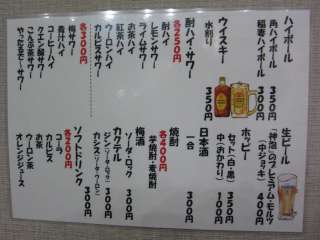 ハイボール
角ハイボール 350円
稲妻ハイボール 300円
ウイスキー
水割り 350円
酎ハイ・サワー
各250円
レモンサワー
ライムサワー
お茶ハイ
紅茶ハイ
ウーロンハイ
カルピスサワー
各300円
梅サワー
青汁ハイ
コーヒーハイ
クエン酸サワー
こんぶ茶サワー
生ビール
「神泡」のプレミアム・モルツ
(中ジョッキ) 400円
ホッピー
セット(白・黒) 350円
中(おかわり) 100円
日本酒
一合 300円
焼酎
各400円
芋焼酎・麦焼酎
梅酒
ソーダ・ロック 300円
カクテル
ジン(ソーダ・ロック) 300円
カシス(ソーダ・ウーロン) 300円
ソフトドリンク
各200円
コーラ
カルピス
お茶
ウーロン茶
オレンジジュース